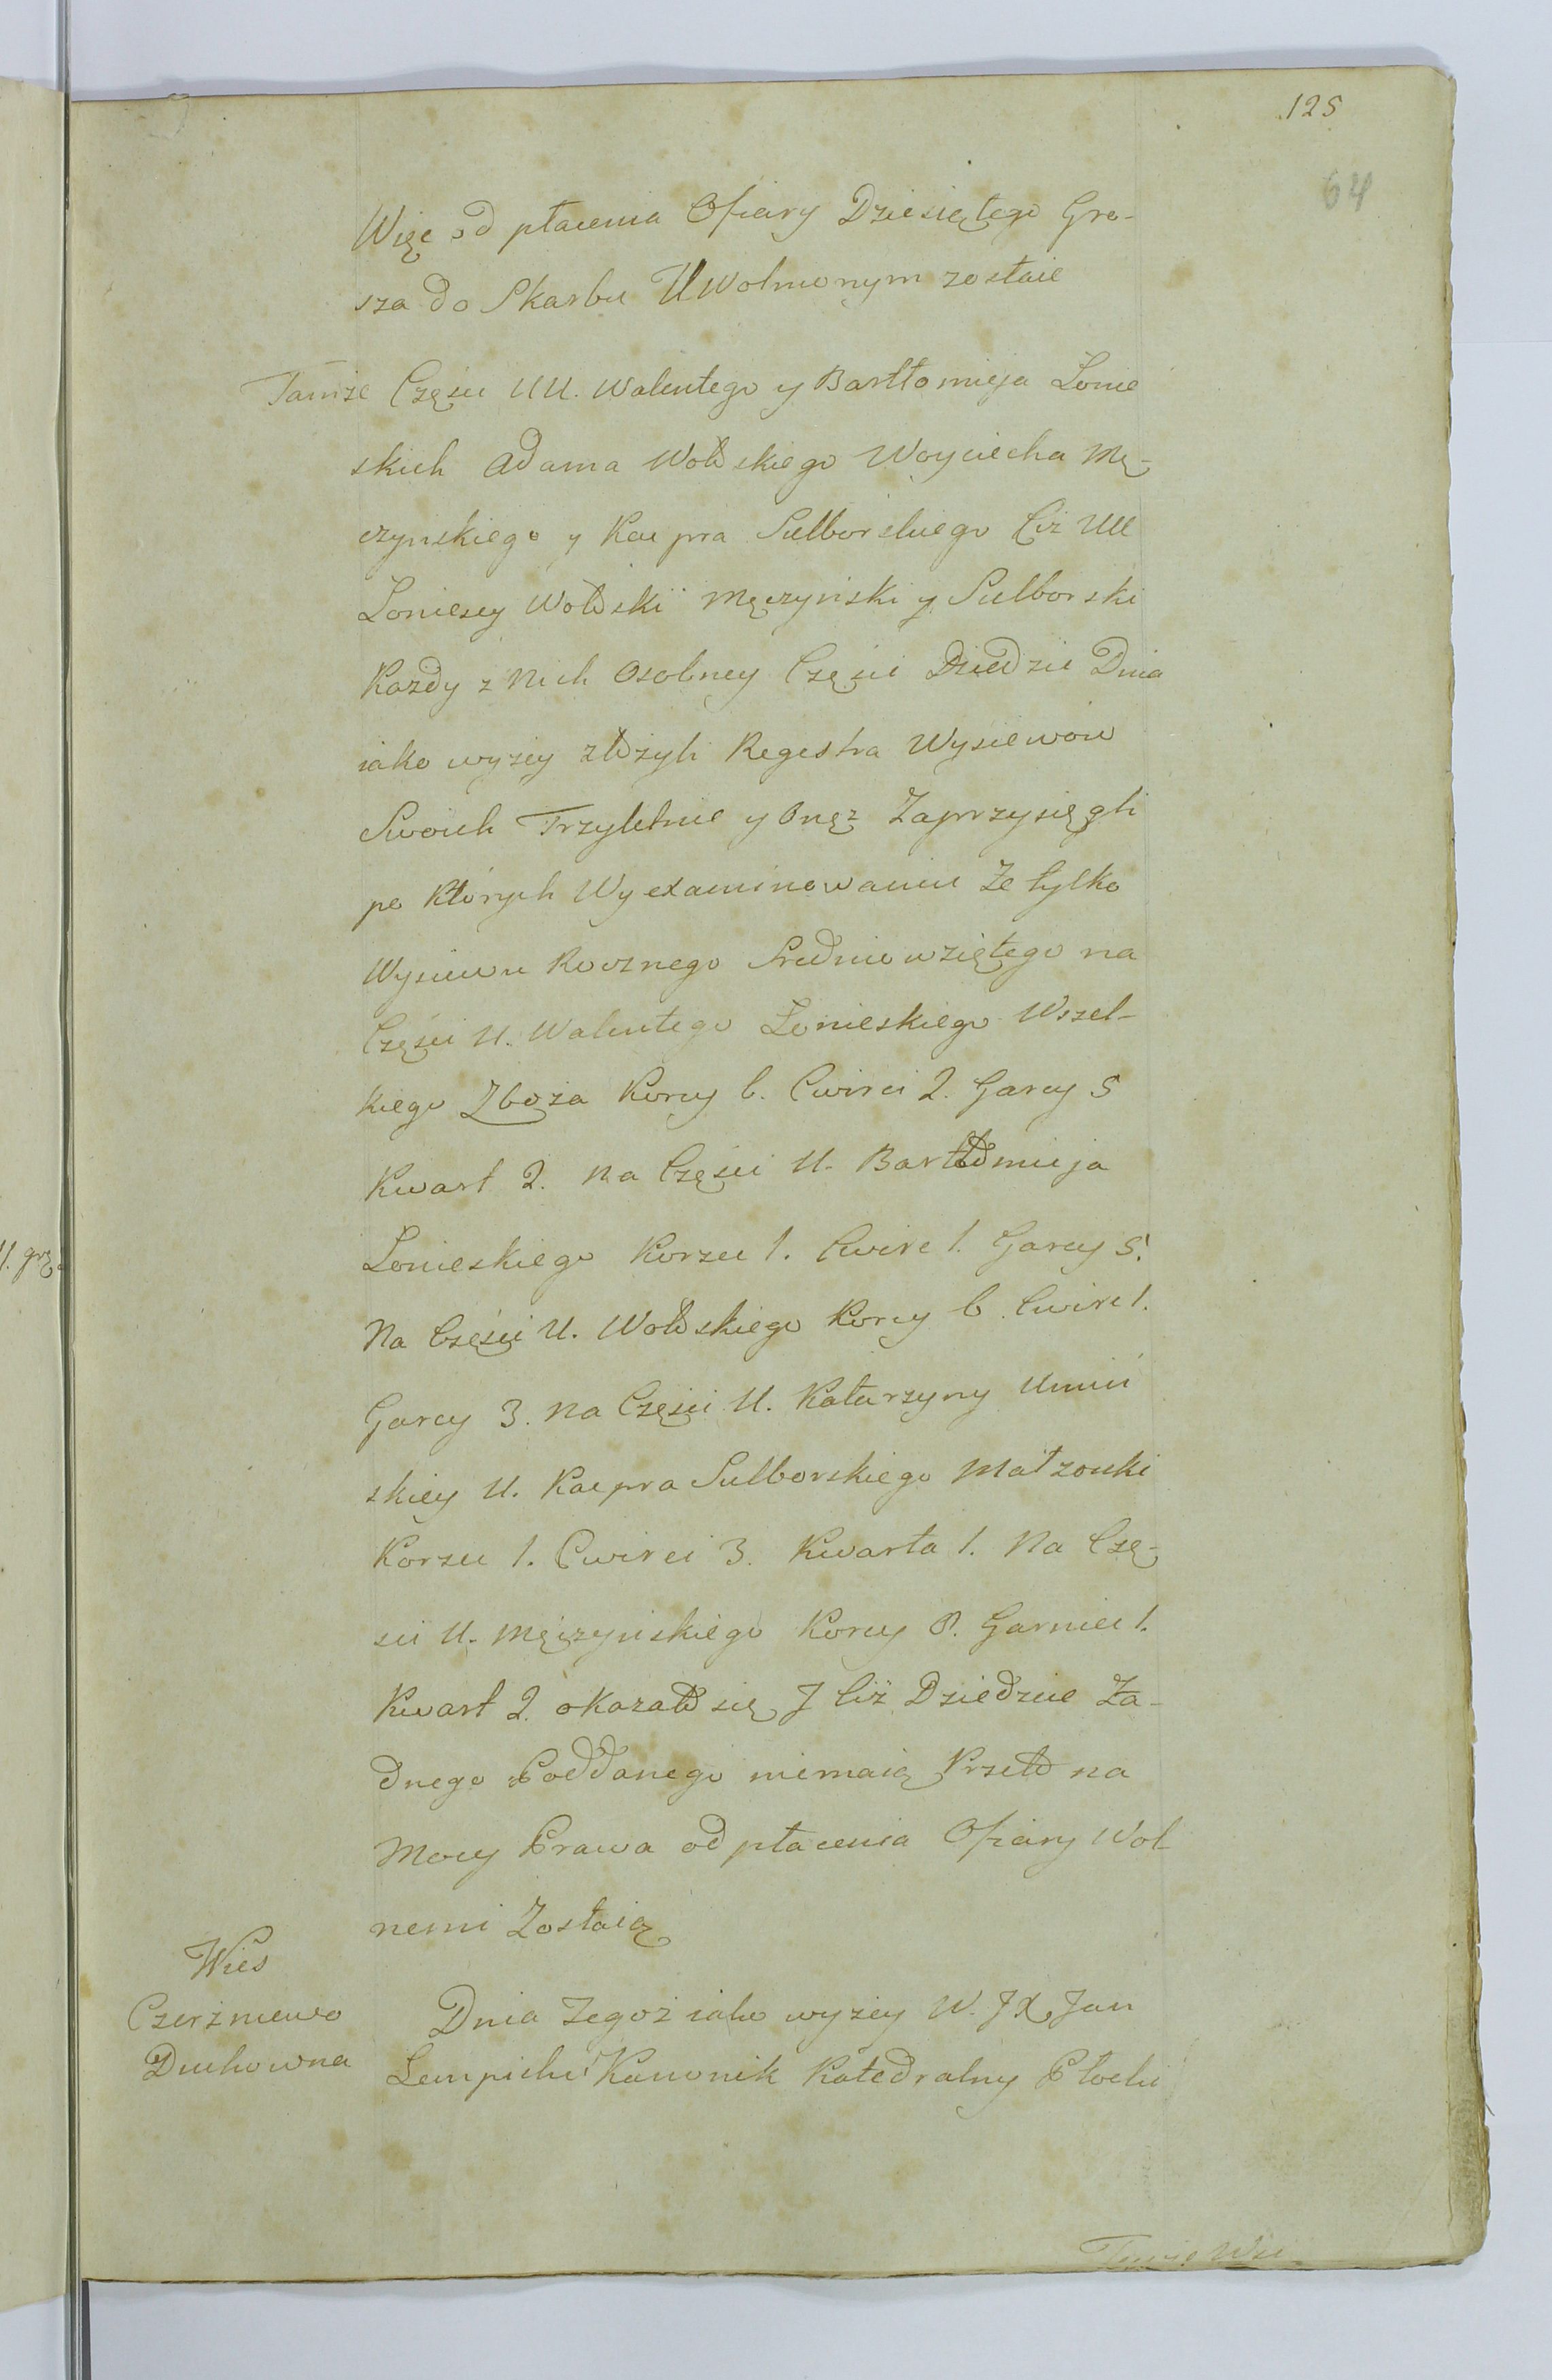 125
64
Więc od płacenia Ofiary Dziesiętego Gro-
sza do Skarbu Uwolnionym zostaie
Tamże Części UU. Walentego y Bartłomieja Lonie
skich Adama Wolskiego Woyciecha Mę-
czynskiego y Kacpra Sulborskiego Ciż UU
Loniescy Wolski Męczyński y Sulborski
Kazdy z Nich Osobney Części Dziedzic Dnia
iako wyzey złożyli Regestra Wysiewow
Swoich Trzyletnie y Onęz Zaprzysięgli
po Których Wyexaminowaniu Ze tylko
Wysiewu Rocznego Srednio wziętego na
Części U. Walentego Lonieskiego Wszel-
kiego Zboża Korcy 6. Cwirci 2. Garcy 5
Kwart 2. Na Części U. Bartłomieja
Lonieskiego Korzec 1. Cwirc 1. Garcy 5.
Na Części U. Wolskiego Korcy 6. Cwirc 1.
Garcy 3. Na Części U. Katarzyny Umiń
skiey U. Kacpra Sulborskiego Małżonki
Korzec 1. Cwirci 3. Kwarta 1. Na Czę-
sci U. Męczyńskiego Korcy 8. Garniec 1.
Kwart 2. okazało się I Ciż Dziedzice Ża-
dnego Poddanego niemaią Przeto na
Mocy Prawa od płacenia Ofiary Wol
nemi Zostaią
Wies
Czerżniewo
Duchowna
Dnia Tegoż iako wyżey W. JX Jan
Lempicki Kanonik Katedralny Płocki